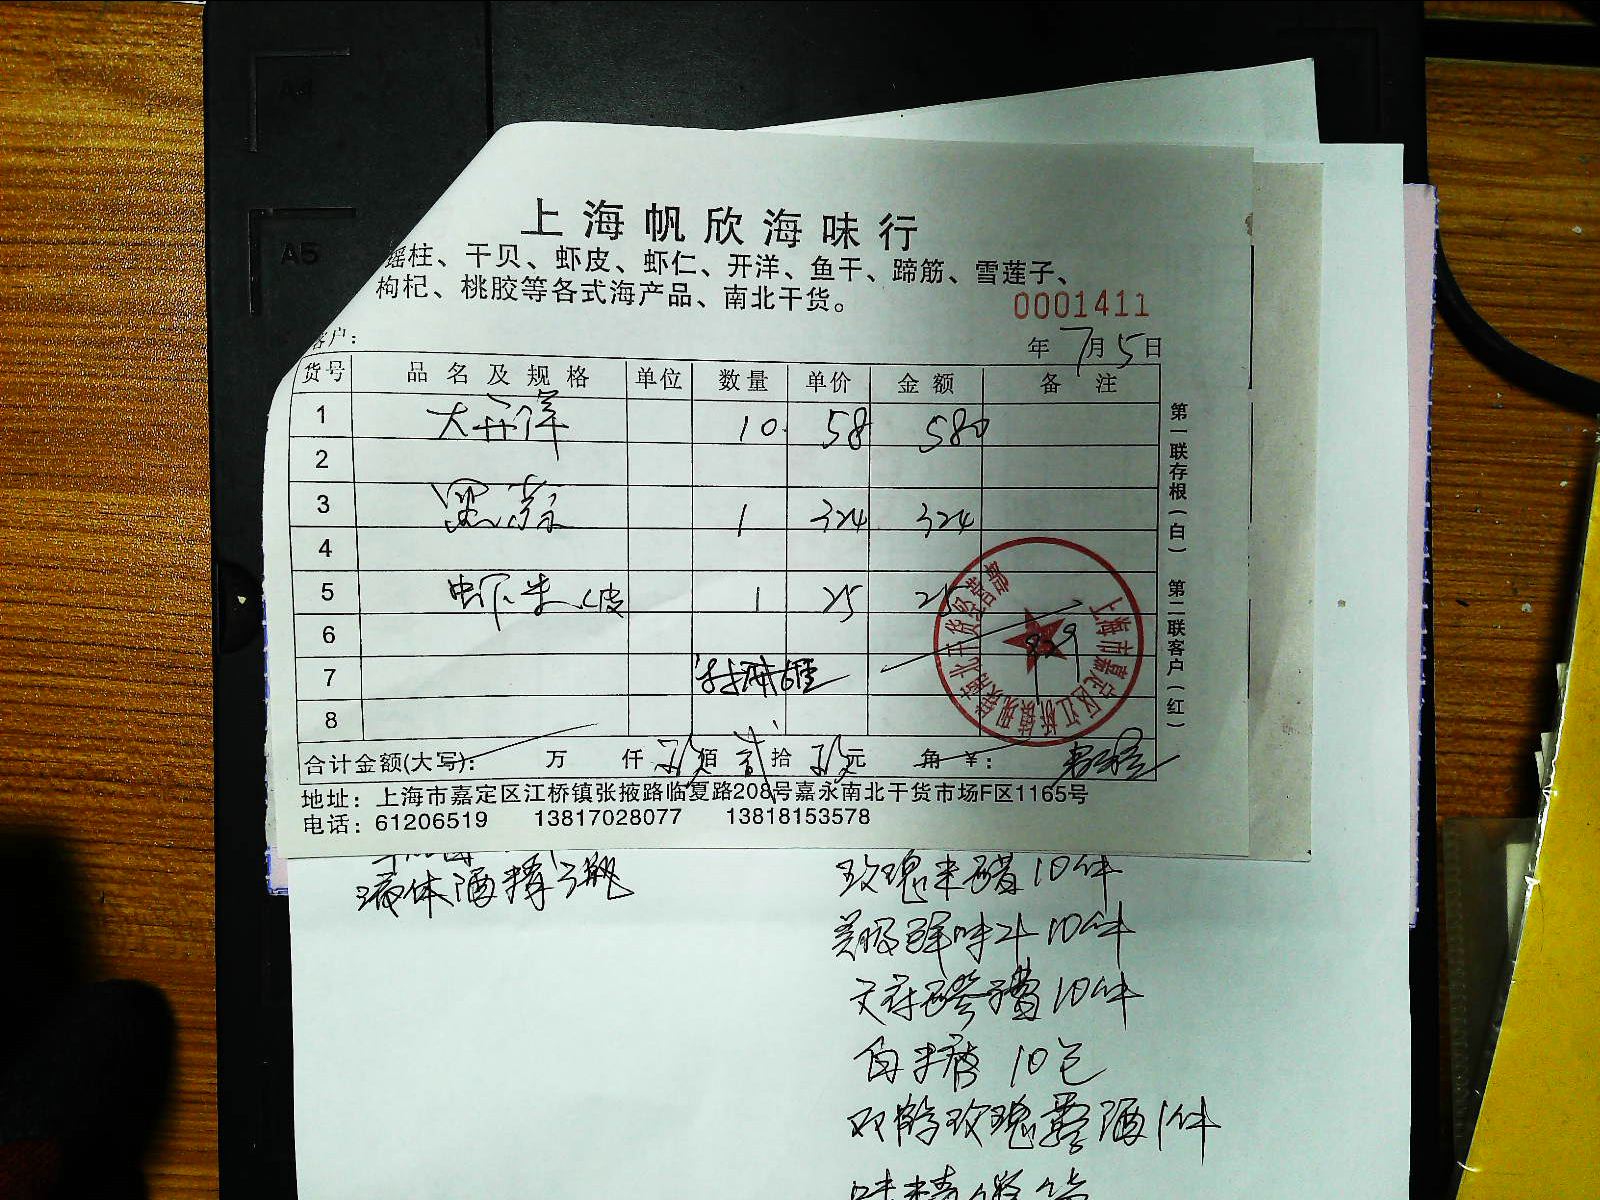 A5
上海帆欣海味行
瑶柱、干贝、虾皮、虾仁、开洋、鱼干、蹄筋、雪莲子、
枸杞、桃胶等各式海产品、南北干货。
0001411
客户：
年 7月5日
货号 品名及规格 单位 数量 单价 金额 备注
1 大开洋 10 58 580
2
3 1 324 324
4
5 虾米皮 1 25 25
6 929
7
8
合计金额(大写)： 万 仟 玖佰 贰拾 玖元 角 ¥：
地址：上海市嘉定区江桥镇张掖路临夏路208号嘉永南北干货市场F区1165号
电话：61206519 13817028077 13818153578
第一联存根(白) 第二联客户(红)
液体酒精3瓶
玫瑰米醋10件
美极鲜味汁10件
10件
白米醋 10包
双鹤玫瑰露酒1件